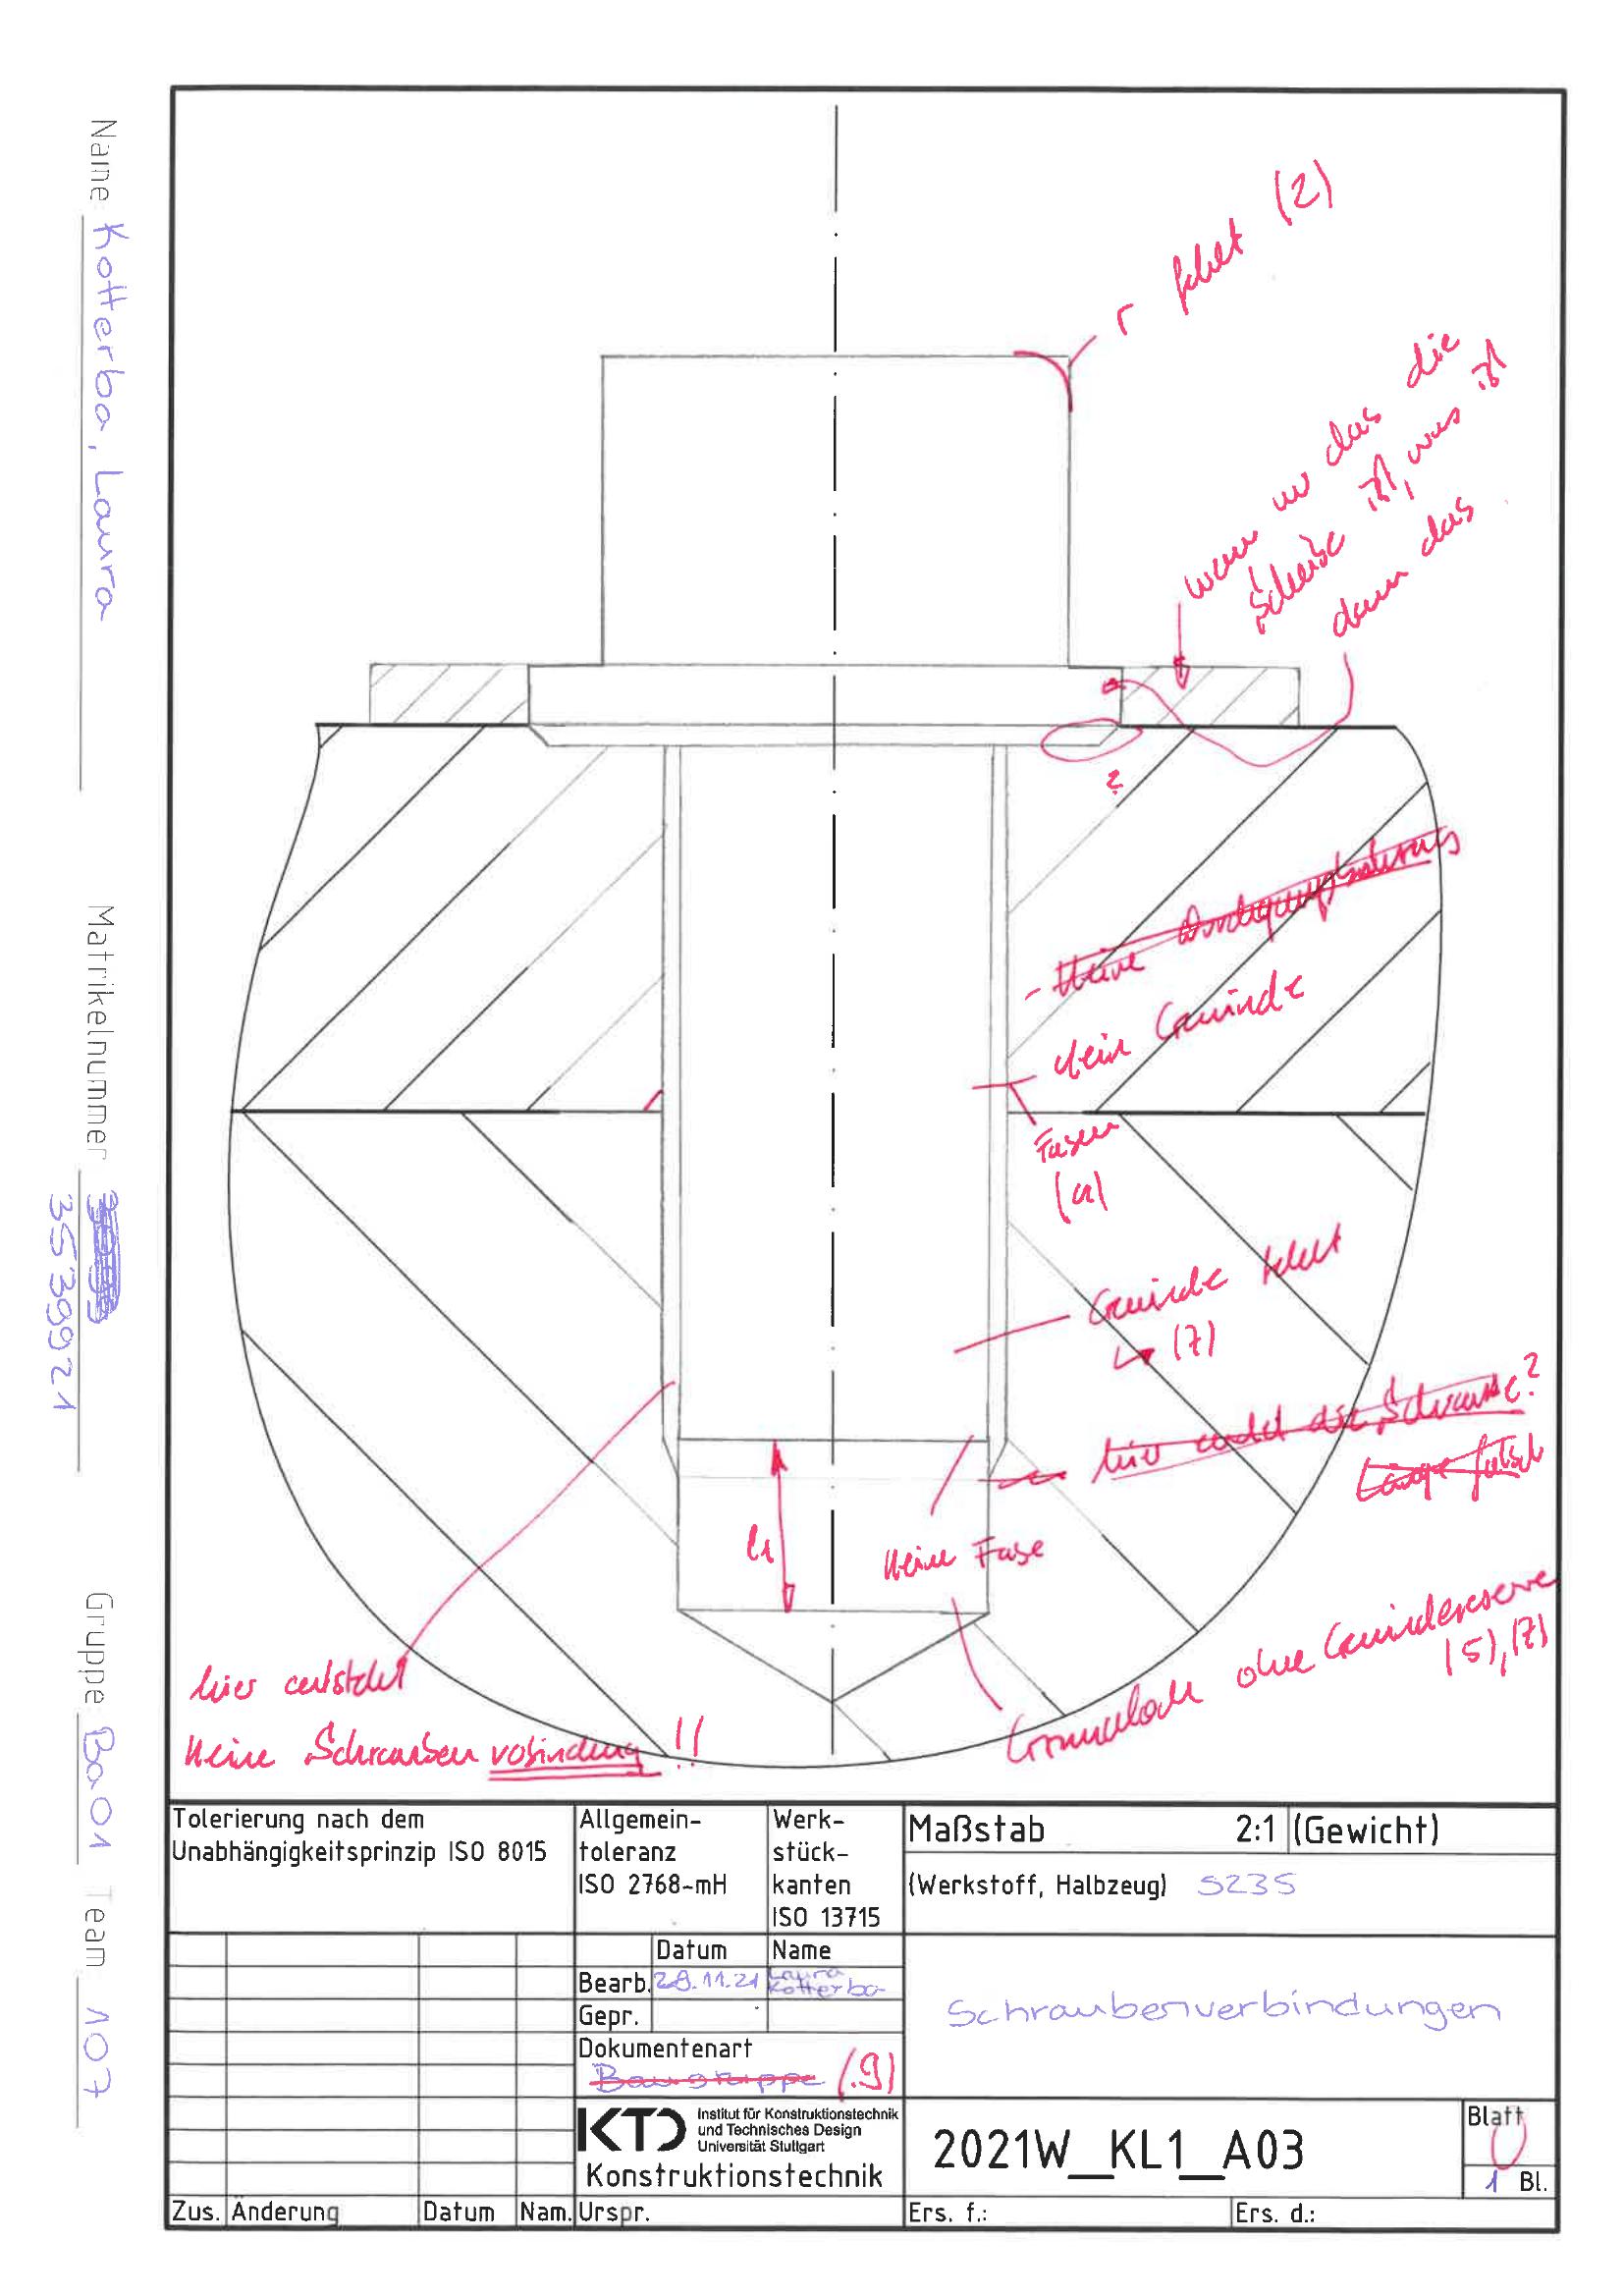 Name: Kotterba, Laura
Matrikelnummer
3539921
Gruppe: Ba 01 Team: 107
r fehlt (2)
wenn das die
Scheibe ist, was ist
dann das
?
- keine
kein Gewinde
Fasen
(a)
Gewinde fehlt
↳ (7)
hier endet die Schraube?
Länge falsch
l1
keine Fase
hier entsteht
keine Schrauben verbindung !!
ohne Gewindereserve
(5), (7)
Tolerierung nach dem
Unabhängigkeitsprinzip ISO 8015
Allgemein-
toleranz
ISO 2768-mH
Werk-
stück-
kanten
ISO 13715
Maßstab 2:1 (Gewicht)
(Werkstoff, Halbzeug) S235
Datum Name
Bearb. 28.11.21 Laura
Kotterba
Gepr.
Dokumentenart
Baugruppe (.9)
Schraubenverbindungen
KTD Institut für Konstruktionstechnik
und Technisches Design
Universität Stuttgart
Konstruktionstechnik
2021W_KL1_A03
Blatt
1 Bl.
Zus. Änderung Datum Nam. Urspr. Ers. f.: Ers. d.: